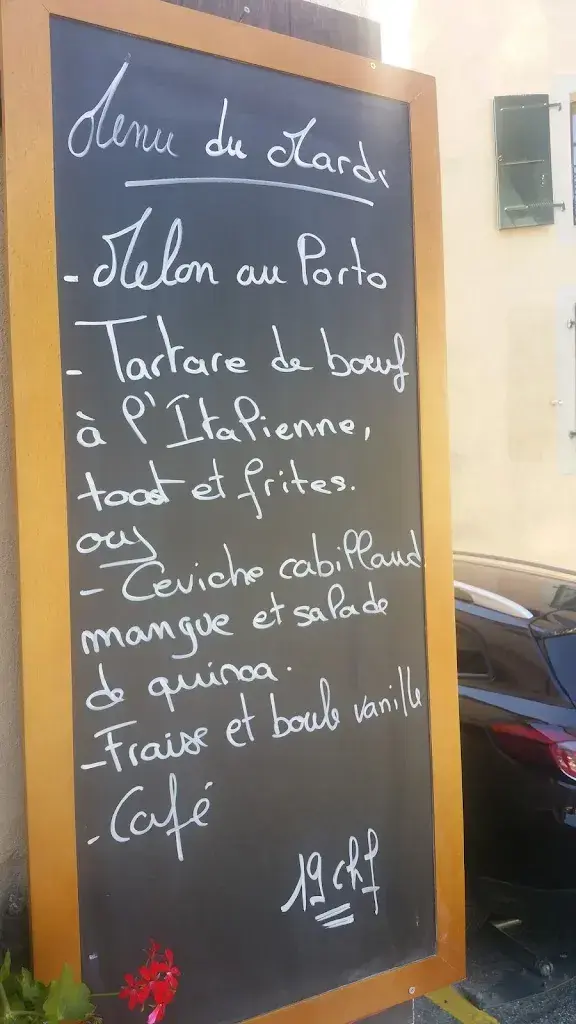 Menu du Mardi
- Melon au Porto
- Tartare de boeuf
à l'Italienne,
toast et frites.
ou
- Ceviche cabillaud
mangue et salade
de quinoa.
- Fraise et boule vanille
- Café
19 chf